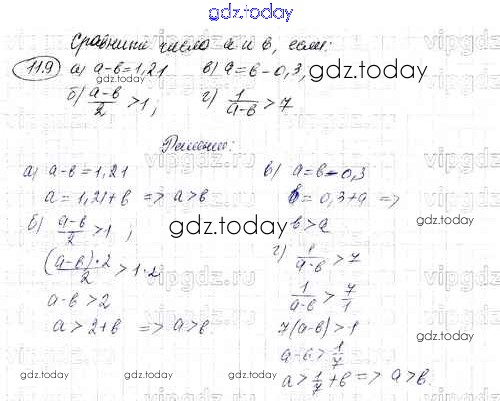 gdz.today
Сравните числа a и b, если:
11.9 а) a-b=1,21 в) a=b-0,3;
б) (a-b)/2 >1; г) 1/(a-b) >7
gdz.today
Решение:
а) a-b=1,21
a=1,21+b => a>b
б) (a-b)/2 >1;
((a-b)·2)/2 >1·2
a-b>2
a>2+b => a>b.
в) a=b-0,3
b=0,3+a =>
b>a
г) 1/(a-b) >7
1/(a-b) > 7/1
7(a-b)>1
a-b>1/7
a>1/7+b => a>b.
gdz.today
gdz.today
gdz.today
gdz.today
gdz.today
gdz.today
gdz.today